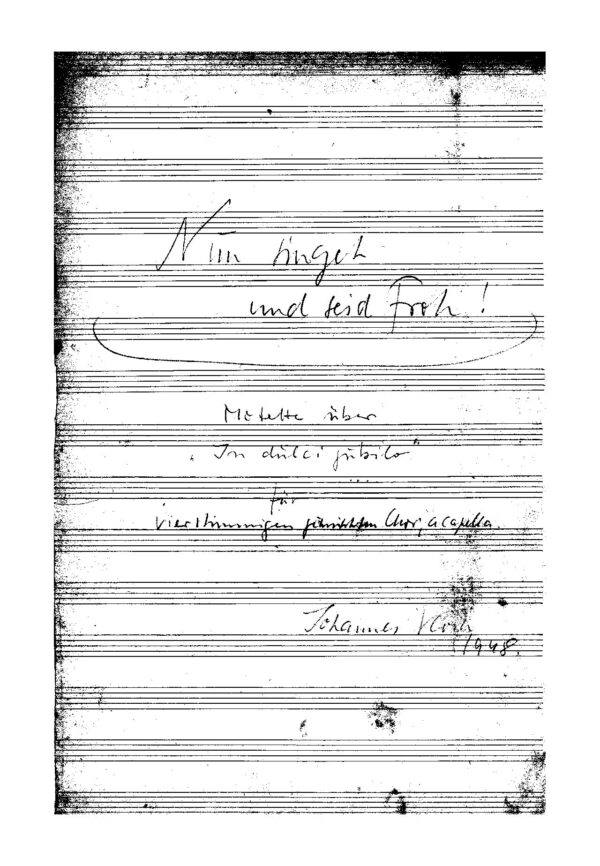 Nun singet
und seid froh!
Motette über
„In dulci jubilo"
für
vierstimmigen gemischten Chor, a capella.
Johannes
1948.